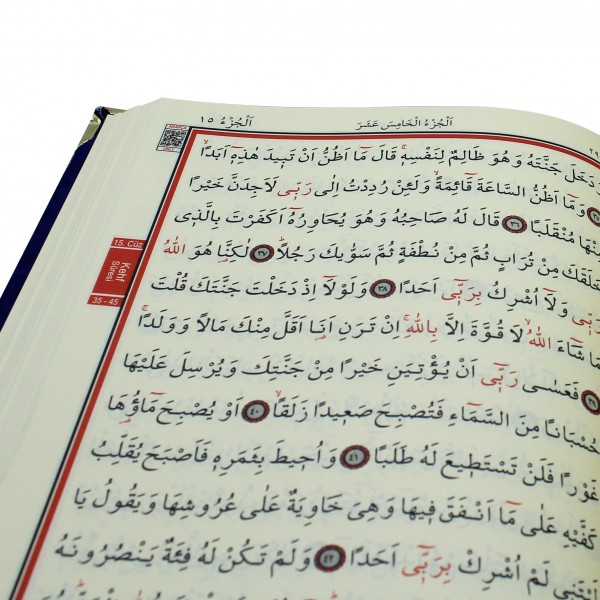 اَلْجُزْءُ الْخَامِسَ عَشَرَ
اَلْجُزْءُ ١٥
دَخَلَ جَنَّتَهُ وَهُوَ ظَالِمٌ لِنَفْسِهٖۚ قَالَ مَٓا اَظُنُّ اَنْ تَبٖيدَ هٰذِهٖٓ اَبَدًاۙ
وَمَٓا اَظُنُّ السَّاعَةَ قَٓائِمَةًۙ وَلَئِنْ رُدِدْتُ اِلٰى رَبّٖى لَاَجِدَنَّ خَيْرًا
مِنْهَا مُنْقَلَبًا ﴿٣٦﴾ قَالَ لَهُ صَاحِبُهُ وَهُوَ يُحَاوِرُهُٓ اَكَفَرْتَ بِالَّذٖى
خَلَقَكَ مِنْ تُرَابٍ ثُمَّ مِنْ نُطْفَةٍ ثُمَّ سَوّٰيكَ رَجُلًاؕ ﴿٣٧﴾ لٰكِنَّا۬ هُوَ اللّٰهُ
رَبّٖى وَلَٓا اُشْرِكُ بِرَبّٖٓى اَحَدًا ﴿٣٨﴾ وَلَوْلَٓا اِذْ دَخَلْتَ جَنَّتَكَ قُلْتَ
مَا شَٓاءَ اللّٰهُۙ لَا قُوَّةَ اِلَّا بِاللّٰهِۚ اِنْ تَرَنِ اَنَا۬ اَقَلَّ مِنْكَ مَالًا وَوَلَدًاۚ
﴿٣٩﴾ فَعَسٰى رَبّٖٓى اَنْ يُؤْتِيَنِ خَيْرًا مِنْ جَنَّتِكَ وَيُرْسِلَ عَلَيْهَا
حُسْبَانًا مِنَ السَّمَٓاءِ فَتُصْبِحَ صَعٖيدًا زَلَقًاۙ ﴿٤٠﴾ اَوْ يُصْبِحَ مَٓاؤُ۬هَا
غَوْرًا فَلَنْ تَسْتَطٖيعَ لَهُ طَلَبًا ﴿٤١﴾ وَاُحٖيطَ بِثَمَرِهٖ فَاَصْبَحَ يُقَلِّبُ
كَفَّيْهِ عَلٰى مَٓا اَنْفَقَ فٖيهَا وَهِىَ خَاوِيَةٌ عَلٰى عُرُوشِهَا وَيَقُولُ يَا
لَيْتَنٖى لَمْ اُشْرِكْ بِرَبّٖٓى اَحَدًا ﴿٤٢﴾ وَلَمْ تَكُنْ لَهُ فِئَةٌ يَنْصُرُونَهُ
15. Cüz
Kehf
Sûresi
35 - 45